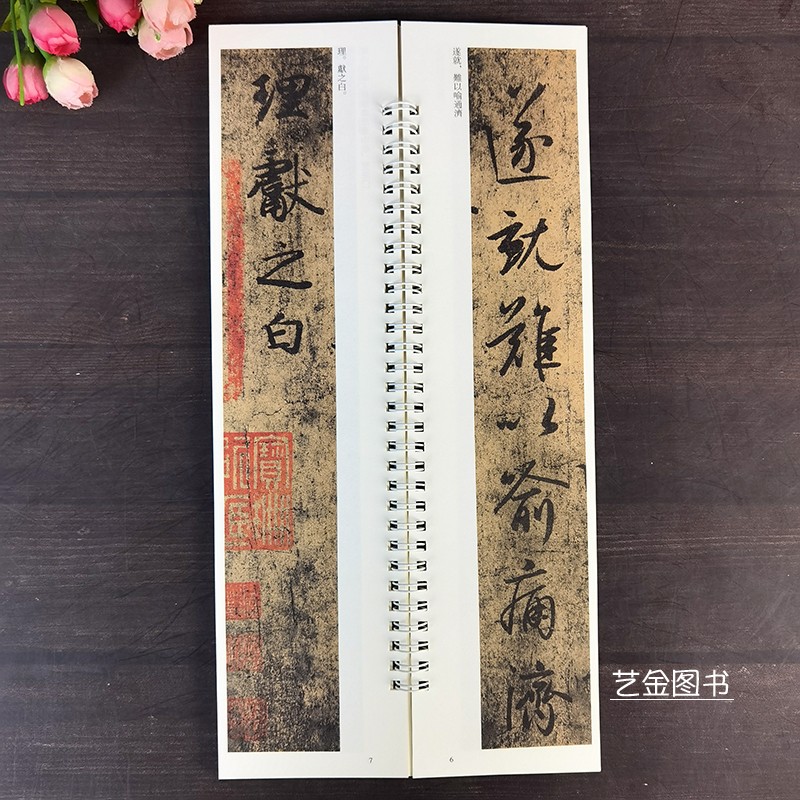 遂就難以喻痛濟
遂就，難以喻過濟
6
理獻之白
理。獻之白。
7
艺金图书